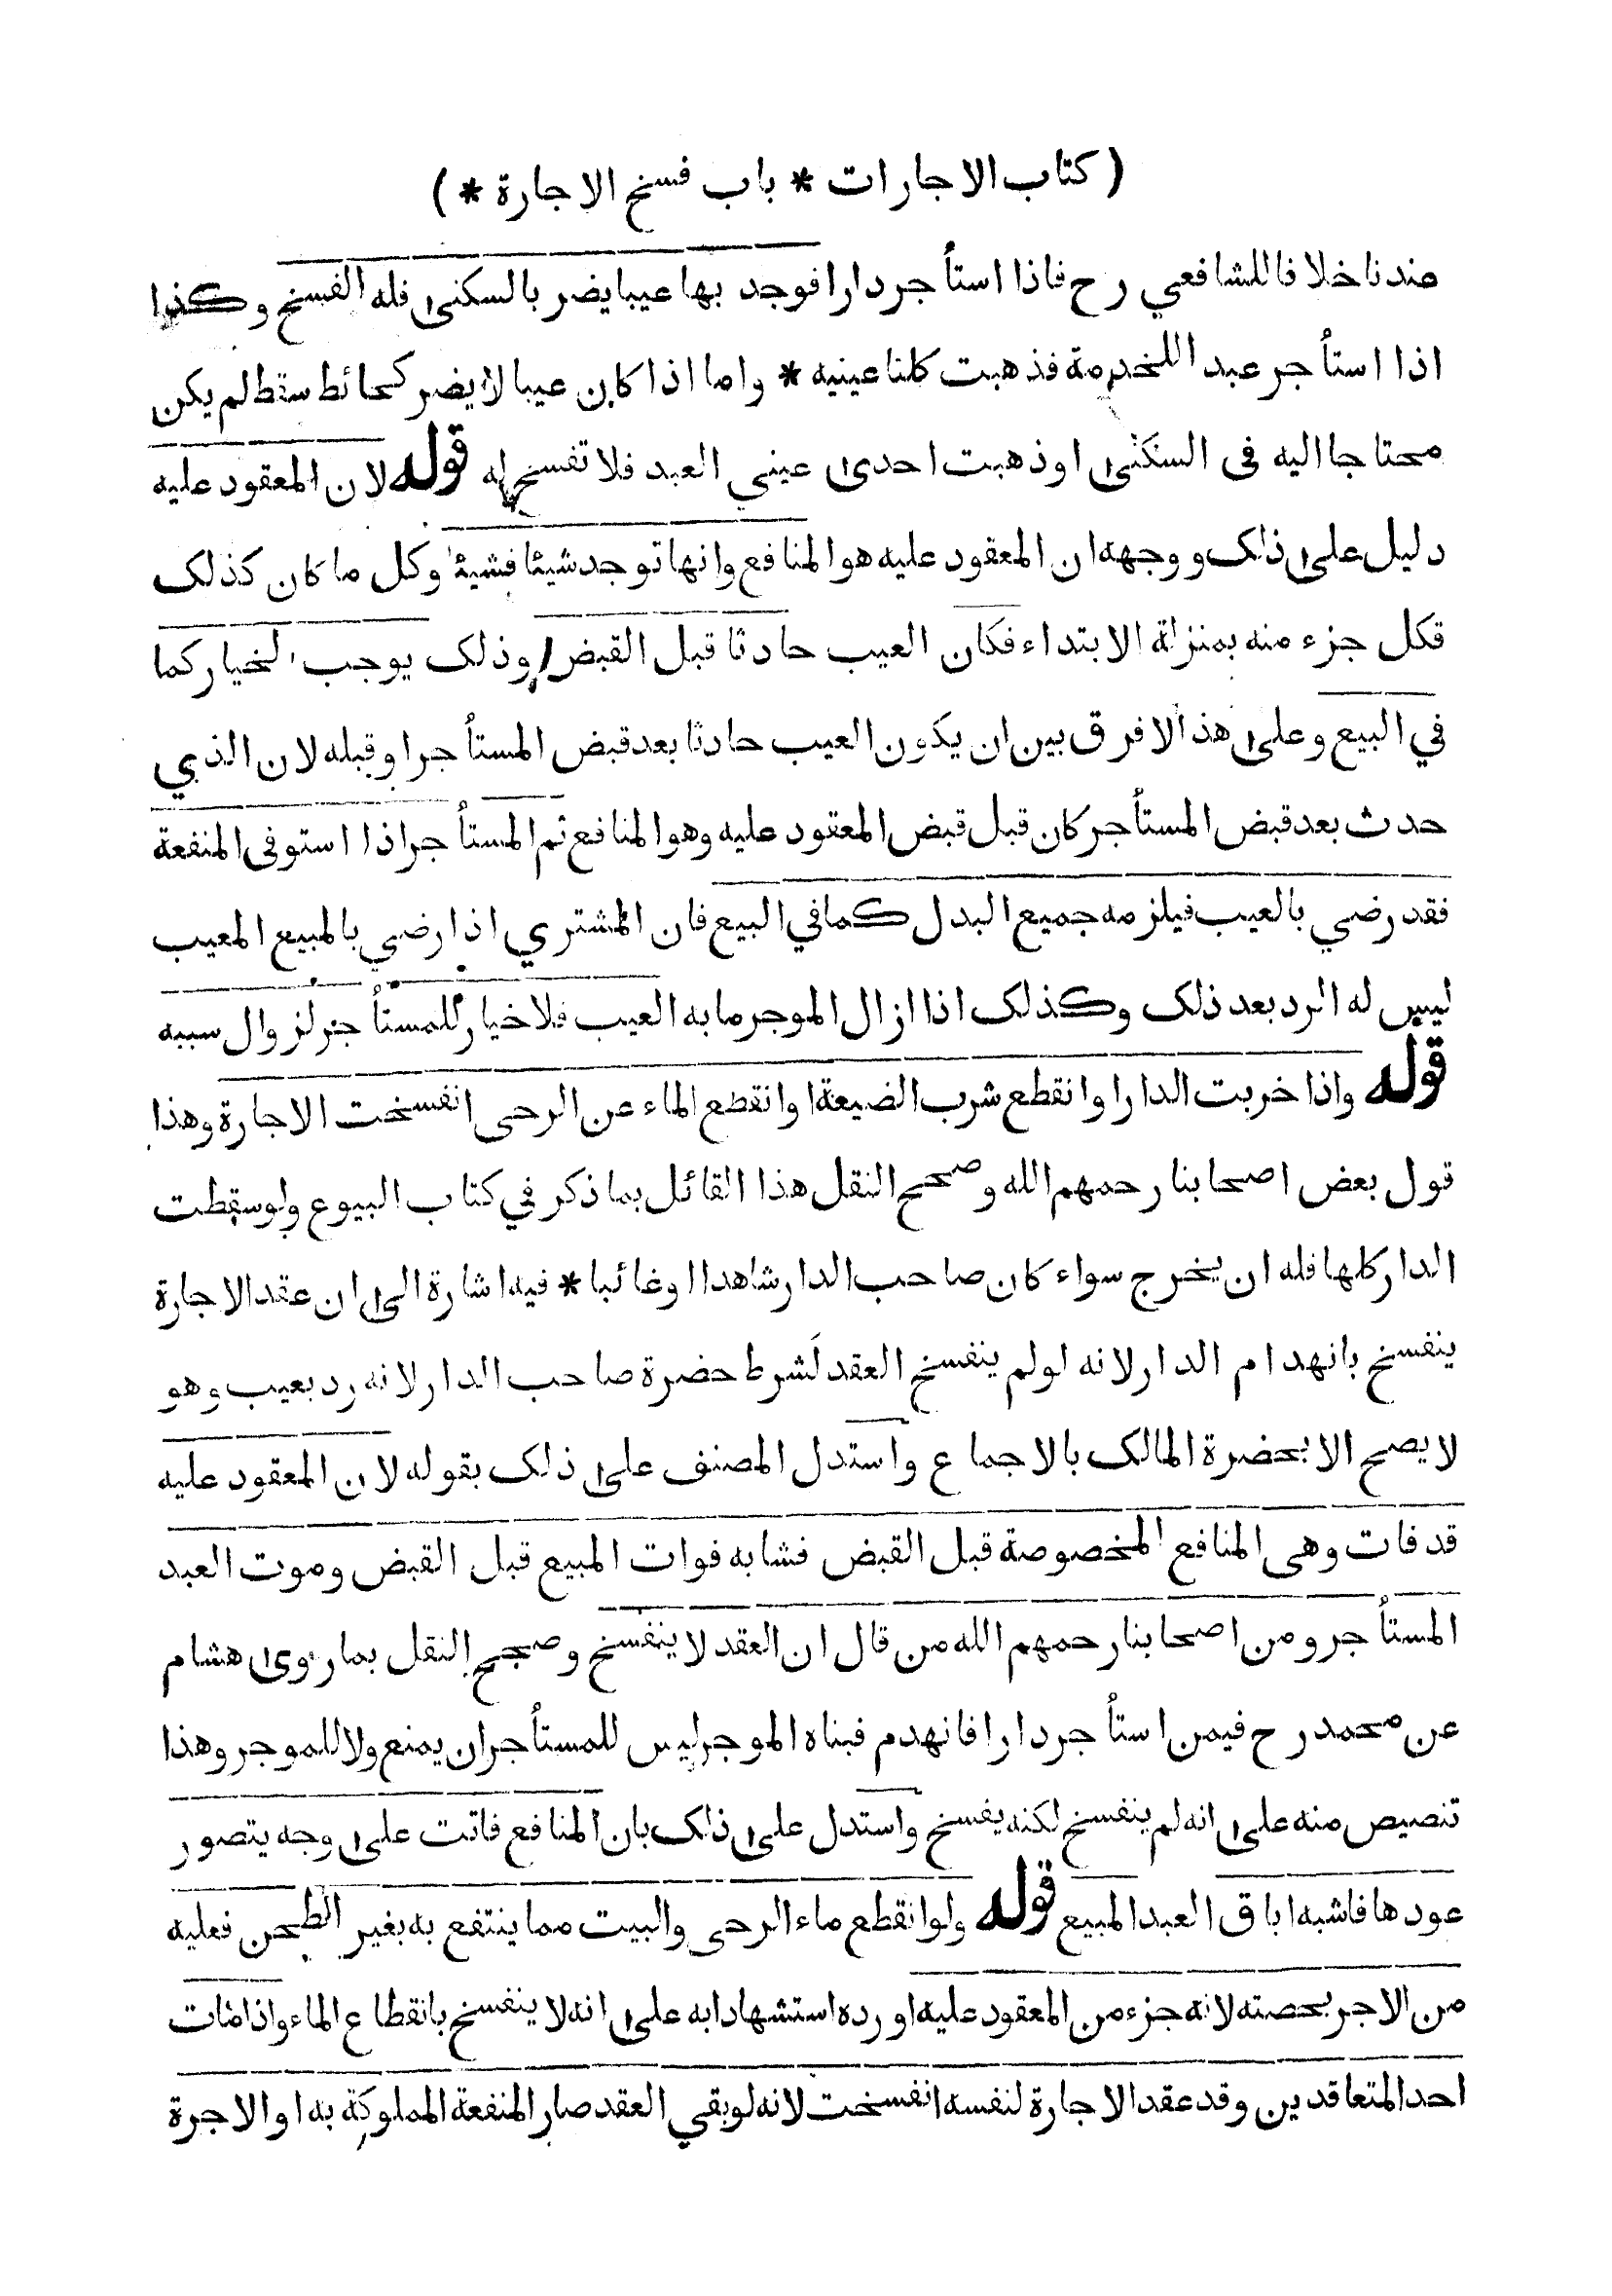 ( كتاب الاجارات * باب فسخ الاجارة * )
عندنا خلافا للشافعي رح فاذا استأجر دارا فوجد بها عيبا يضر بالسكنى فله الفسخ وكذا
اذا استأجر عبدا للخدمة فذهبت كلتا عينيه * واما اذا كان عيبا لا يضر كحائط سقط لم يكن
محتاجا اليه فى السكنى او ذهبت احدى عيني العبد فلا تفسخ له قوله لان المعقود عليه
دليل على ذلك ووجهه ان المعقود عليه هو المنافع وانها توجد شيئا فشيئا وكل ما كان كذلك
فكل جزء منه بمنزلة الابتداء فكان العيب حادثا قبل القبض وذلك يوجب الخيار كما
في البيع وعلى هذا لا فرق بين ان يكون العيب حادثا بعد قبض المستأجر او قبله لان الذي
حدث بعد قبض المستأجر كان قبل قبض المعقود عليه وهو المنافع ثم المستأجر اذا استوفى المنفعة
فقد رضي بالعيب فيلزمه جميع البدل كما في البيع فان المشتري اذا رضي بالمبيع المعيب
ليس له الرد بعد ذلك وكذلك اذا ازال الموجر ما به العيب فلا خيار للمستأجر لزوال سببه
قوله واذا خربت الدار او انقطع شرب الضيعة او انقطع الماء عن الرحى انفسخت الاجارة وهذا
قول بعض اصحابنا رحمهم الله وصحح النقل هذا القائل بما ذكر في كتاب البيوع ولو سقطت
الدار كلها فله ان يخرج سواء كان صاحب الدار شاهدا او غائبا * فيه اشارة الى ان عقد الاجارة
ينفسخ بانهدام الدار لانه لو لم ينفسخ العقد لَشرط حضرة صاحب الدار لانه رد بعيب وهو
لا يصح الا بحضرة المالك بالاجماع واستدل المصنف على ذلك بقوله لان المعقود عليه
قد فات وهى المنافع المخصوصة قبل القبض فشابه فوات المبيع قبل القبض وموت العبد
المستأجر ومن اصحابنا رحمهم الله من قال ان العقد لا ينفسخ وصحح النقل بما روى هشام
عن محمد رح فيمن استأجر دارا فانهدم فبناه الموجر ليس للمستأجر ان يمنع ولا للموجر وهذا
تنصيص منه على انه لم ينفسخ لكنه يفسخ واستدل على ذلك بان المنافع فاتت على وجه يتصور
عودها فاشبه اباق العبد المبيع قوله ولو انقطع ماء الرحى والبيت مما ينتفع به بغير الطحن فعليه
من الاجر بحصته لانه جزء من المعقود عليه اورده استشهادا به على انه لا ينفسخ بانقطاع الماء واذا مات
احد المتعاقدين وقد عقد الاجارة لنفسه انفسخت لانه لو بقي العقد صار المنفعة المملوكة به او الاجرة